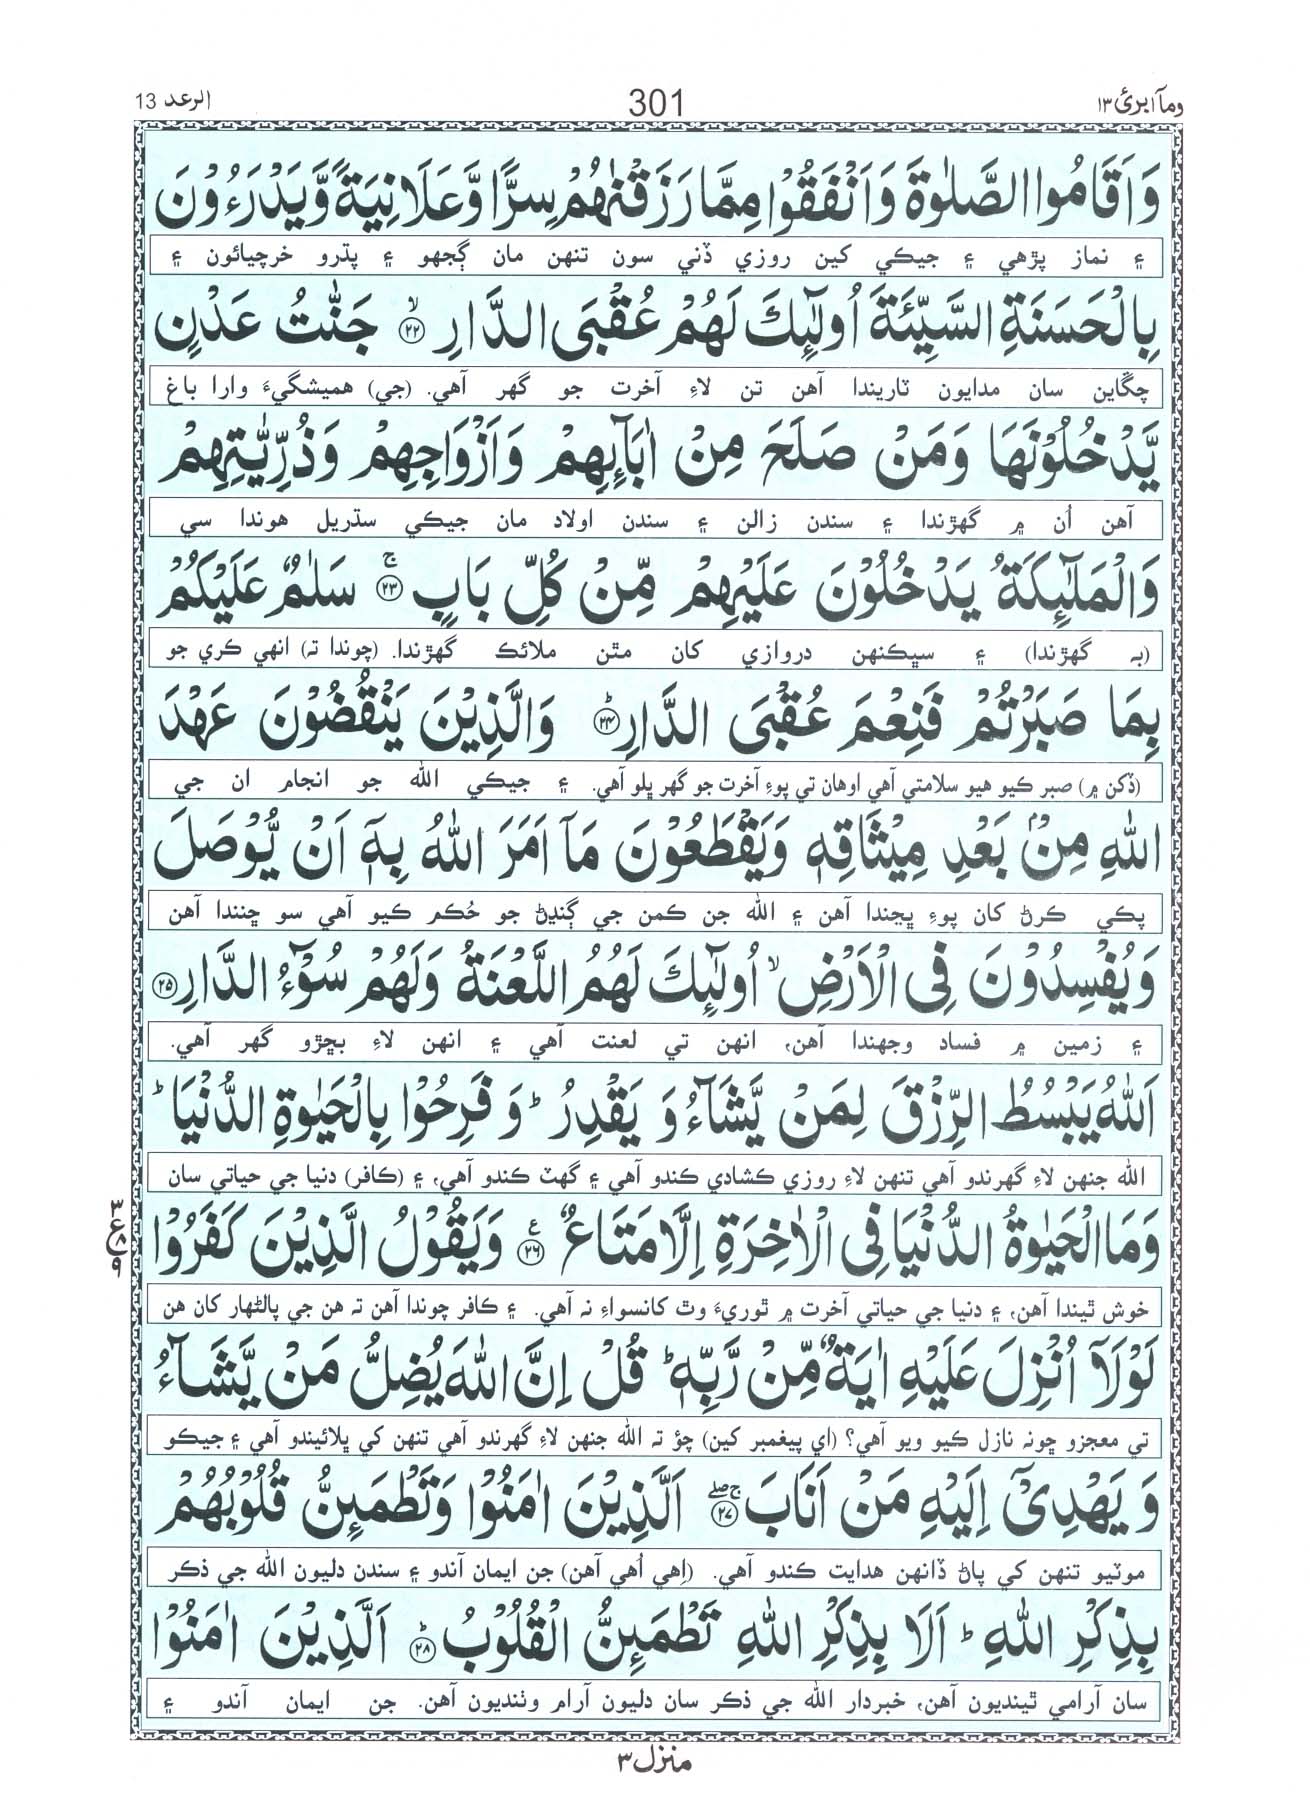 وماۤ ابرئ ١٣ 301 الرعد 13
وَاَقَامُوا الصَّلٰوةَ وَاَنْفَقُوْا مِمَّا رَزَقْنٰهُمْ سِرًّا وَّعَلَانِيَةً وَّيَدْرَءُوْنَ
۽ نماز پڙهي ۽ جيڪي کين روزي ڏني سون تنهن مان ڳجهو ۽ پڌرو خرچيائون ۽
بِالْحَسَنَةِ السَّيِّئَةَ اُولٰٓئِكَ لَهُمْ عُقْبَى الدَّارِ ۙ﴿٢٢﴾ جَنّٰتُ عَدْنٍ
چڱاين سان مدايون ٽاريندا آهن تن لاءِ آخرت جو گهر آهي. (جي) هميشگيءَ وارا باغ
يَّدْخُلُوْنَهَا وَمَنْ صَلَحَ مِنْ اٰبَآئِهِمْ وَاَزْوَاجِهِمْ وَذُرِّيّٰتِهِمْ
آهن اُن ۾ گهڙندا ۽ سندن زالن ۽ سندن اولاد مان جيڪي سڌريل هوندا سي
وَالْمَلٰٓئِكَةُ يَدْخُلُوْنَ عَلَيْهِمْ مِّنْ كُلِّ بَابٍ ۚ﴿٢٣﴾ سَلٰمٌ عَلَيْكُمْ
(به گهڙندا) ۽ سڀڪنهن دروازي کان مٿن ملائڪ گهڙندا. (چوندا ته) انهي ڪري جو
بِمَا صَبَرْتُمْ فَنِعْمَ عُقْبَى الدَّارِ ؕ﴿٢٤﴾ وَالَّذِيْنَ يَنْقُضُوْنَ عَهْدَ
(ڏکن ۾) صبر ڪيو هيو سلامتي آهي اوهان تي پوءِ آخرت جو گهر ڀلو آهي. ۽ جيڪي الله جو انجام ان جي
اللّٰهِ مِنْۢ بَعْدِ مِيْثَاقِهٖ وَيَقْطَعُوْنَ مَاۤ اَمَرَ اللّٰهُ بِهٖۤ اَنْ يُّوْصَلَ
پڪي ڪرڻ کان پوءِ ڀڃندا آهن ۽ الله جن ڪمن جي ڳنڍڻ جو حُڪم ڪيو آهي سو ڇنندا آهن
وَيُفْسِدُوْنَ فِى الْاَرْضِ ۙ اُولٰٓئِكَ لَهُمُ اللَّعْنَةُ وَلَهُمْ سُوْٓءُ الدَّارِ ﴿٢٥﴾
۽ زمين ۾ فساد وجهندا آهن، انهن تي لعنت آهي ۽ انهن لاءِ بڇڙو گهر آهي.
اَللّٰهُ يَبْسُطُ الرِّزْقَ لِمَنْ يَّشَآءُ وَ يَقْدِرُ ؕ وَ فَرِحُوْا بِالْحَيٰوةِ الدُّنْيَا ؕ
الله جنهن لاءِ گهرندو آهي تنهن لاءِ روزي ڪشادي ڪندو آهي ۽ گهٽ ڪندو آهي، ۽ (ڪافر) دنيا جي حياتي سان
وَمَا الْحَيٰوةُ الدُّنْيَا فِى الْاٰخِرَةِ اِلَّا مَتَاعٌ ۧ﴿٢٦﴾ وَيَقُوْلُ الَّذِيْنَ كَفَرُوْا
٣ ع ٨ ٩
خوش ٿيندا آهن، ۽ دنيا جي حياتي آخرت ۾ ٿوريءَ وٿ کانسواءِ نه آهي. ۽ ڪافر چوندا آهن ته هن جي پالڻهار کان هن
لَوْلَاۤ اُنْزِلَ عَلَيْهِ اٰيَةٌ مِّنْ رَّبِّهٖ ؕ قُلْ اِنَّ اللّٰهَ يُضِلُّ مَنْ يَّشَآءُ
تي معجزو ڇونه نازل ڪيو ويو آهي؟ (اي پيغمبر کين) چؤ ته الله جنهن لاءِ گهرندو آهي تنهن کي ڀلائيندو آهي ۽ جيڪو
وَ يَهْدِىْۤ اِلَيْهِ مَنْ اَنَابَ ۖۚ﴿٢٧﴾ اَلَّذِيْنَ اٰمَنُوْا وَتَطْمَئِنُّ قُلُوْبُهُمْ
موٽيو تنهن کي پاڻ ڏانهن هدايت ڪندو آهي. (اِهي اُهي آهن) جن ايمان آندو ۽ سندن دليون الله جي ذڪر
بِذِكْرِ اللّٰهِ ؕ اَلَا بِذِكْرِ اللّٰهِ تَطْمَئِنُّ الْقُلُوْبُ ؕ﴿٢٨﴾ اَلَّذِيْنَ اٰمَنُوْا
سان آرامي ٿينديون آهن، خبردار الله جي ذڪر سان دليون آرام وٺنديون آهن. جن ايمان آندو ۽
منزل ٣